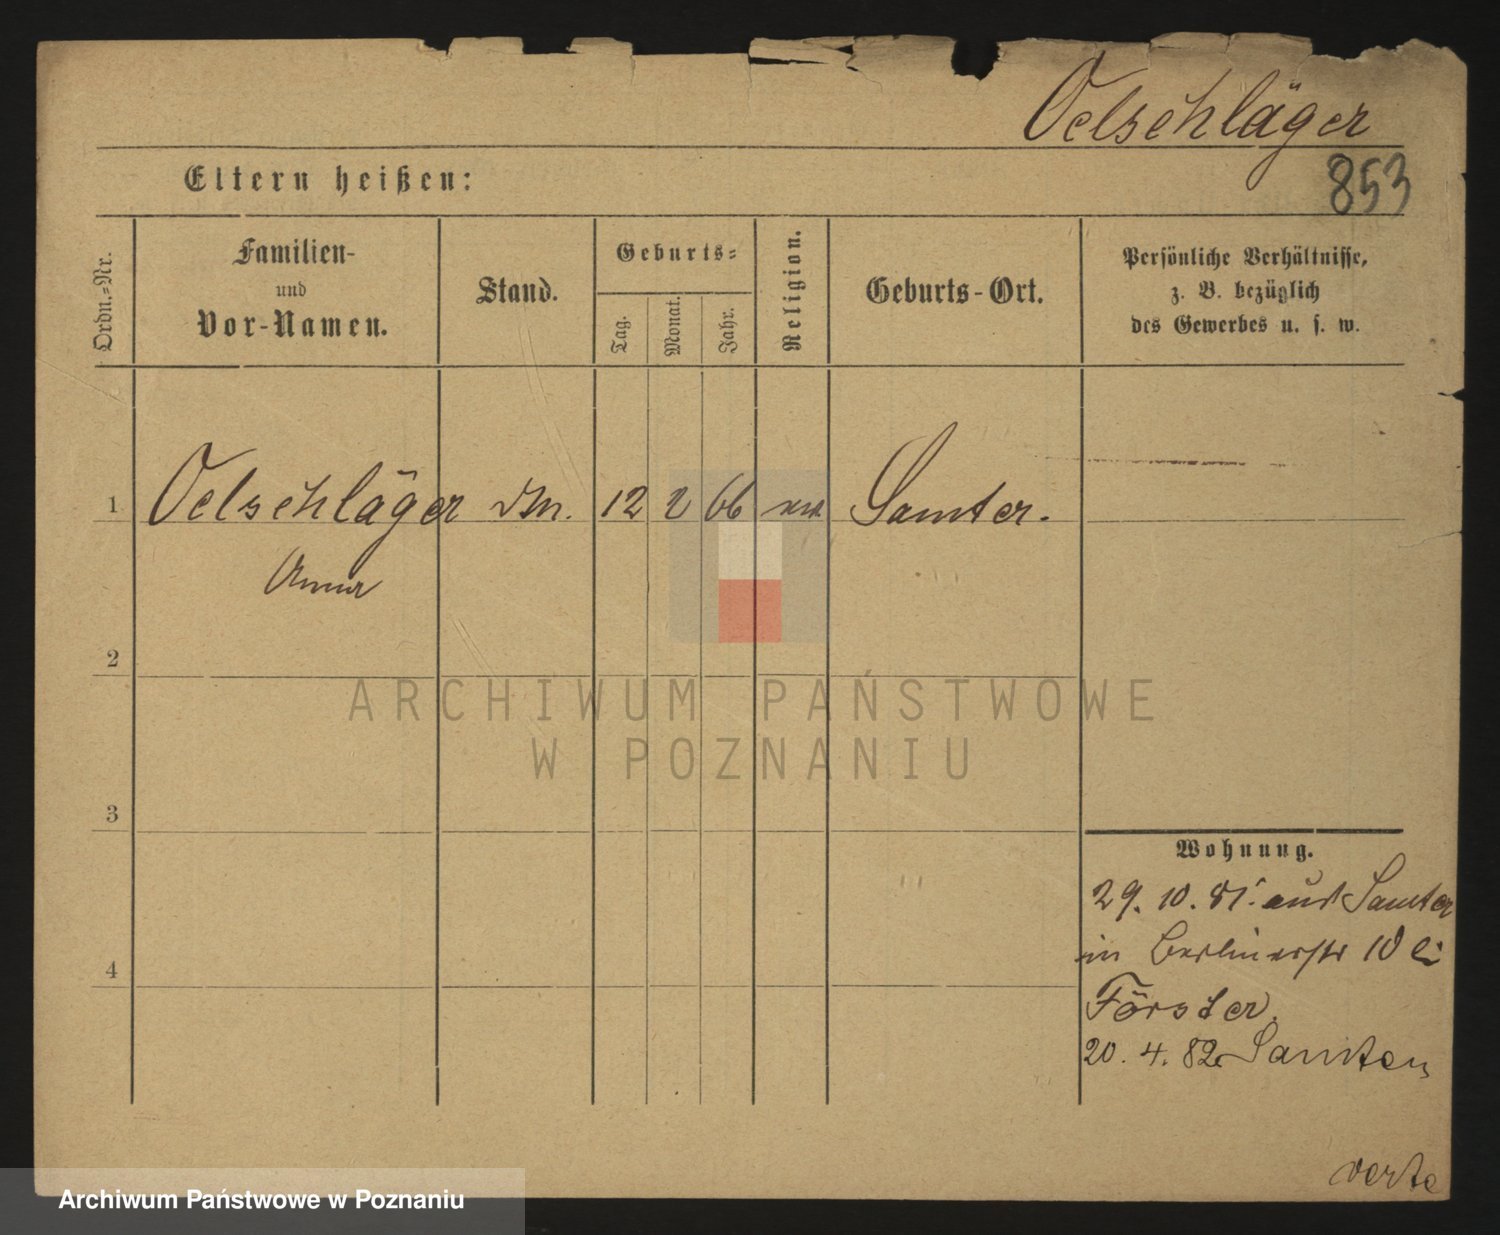 Oelschläger
853
Eltern heißen:
Ordn.-Nr.
Familien-
und
Vor-Namen.
Stand.
Geburts-
Tag.
Monat.
Jahr.
Religion.
Geburts-Ort.
Persönliche Verhältnisse,
z. B. bezüglich
des Gewerbes u. s. w.
1 Oelschläger 12 2 66 Samter.
Anna
2
3
4
Wohnung.
29. 10. 81. aus Samter
in Berlinerstr 10
Förster.
20. 4. 82 Samter
verte
ARCHIWUM PAŃSTWOWE
W POZNANIU
Archiwum Państwowe w Poznaniu